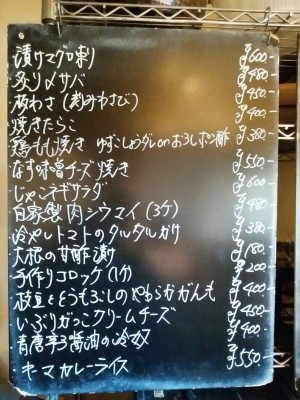 漬けマグロ刺 ¥600-
炙り〆サバ ¥480-
板わさ(刻みわさび) ¥450-
焼きたらこ ¥400-
鶏もも焼き ゆずこしょうダレonおろしポン酢 ¥380-
なす味噌チーズ焼き ¥550-
じゃこネギサラダ ¥600-
自家製肉シウマイ(3ケ) ¥480-
冷やしトマトのタルタルがけ ¥380-
大根の甘酢漬け ¥180-
手作りコロッケ(1ケ) ¥200-
枝豆ととうもろこしのやわらかがんも ¥400-
いぶりがっこクリームチーズ ¥450-
青唐辛子醤油の冷奴 ¥400-
キーマカレーライス ¥550-